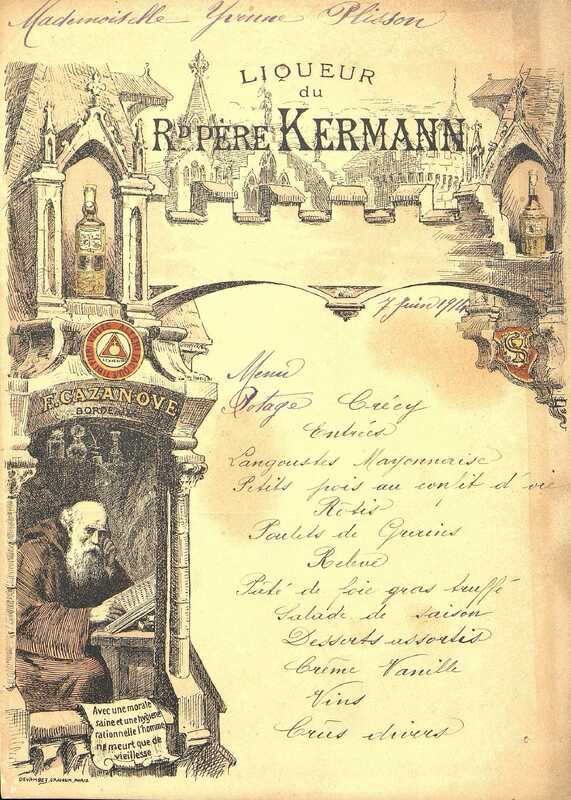 Mademoiselle Yvonne Plisson
LIQUEUR
du
RD PÈRE KERMANN
7 Juin 1914
F. CAZANOVE
BORDEAUX
Menu
Potage Crécy
Entrées
Langoustes Mayonnaise
Petits pois au confit d'oie
Rotis
Poulets de Grains
Relevé
Pâté de foie gras truffé
Salade de saison
Desserts assortis
Crème Vanille
Vins
Crûs divers
Avec une morale
saine et une hygiène
rationnelle l'homme
ne meurt que de
vieillesse
DEVAMBEZ, GRAVEUR, PARIS